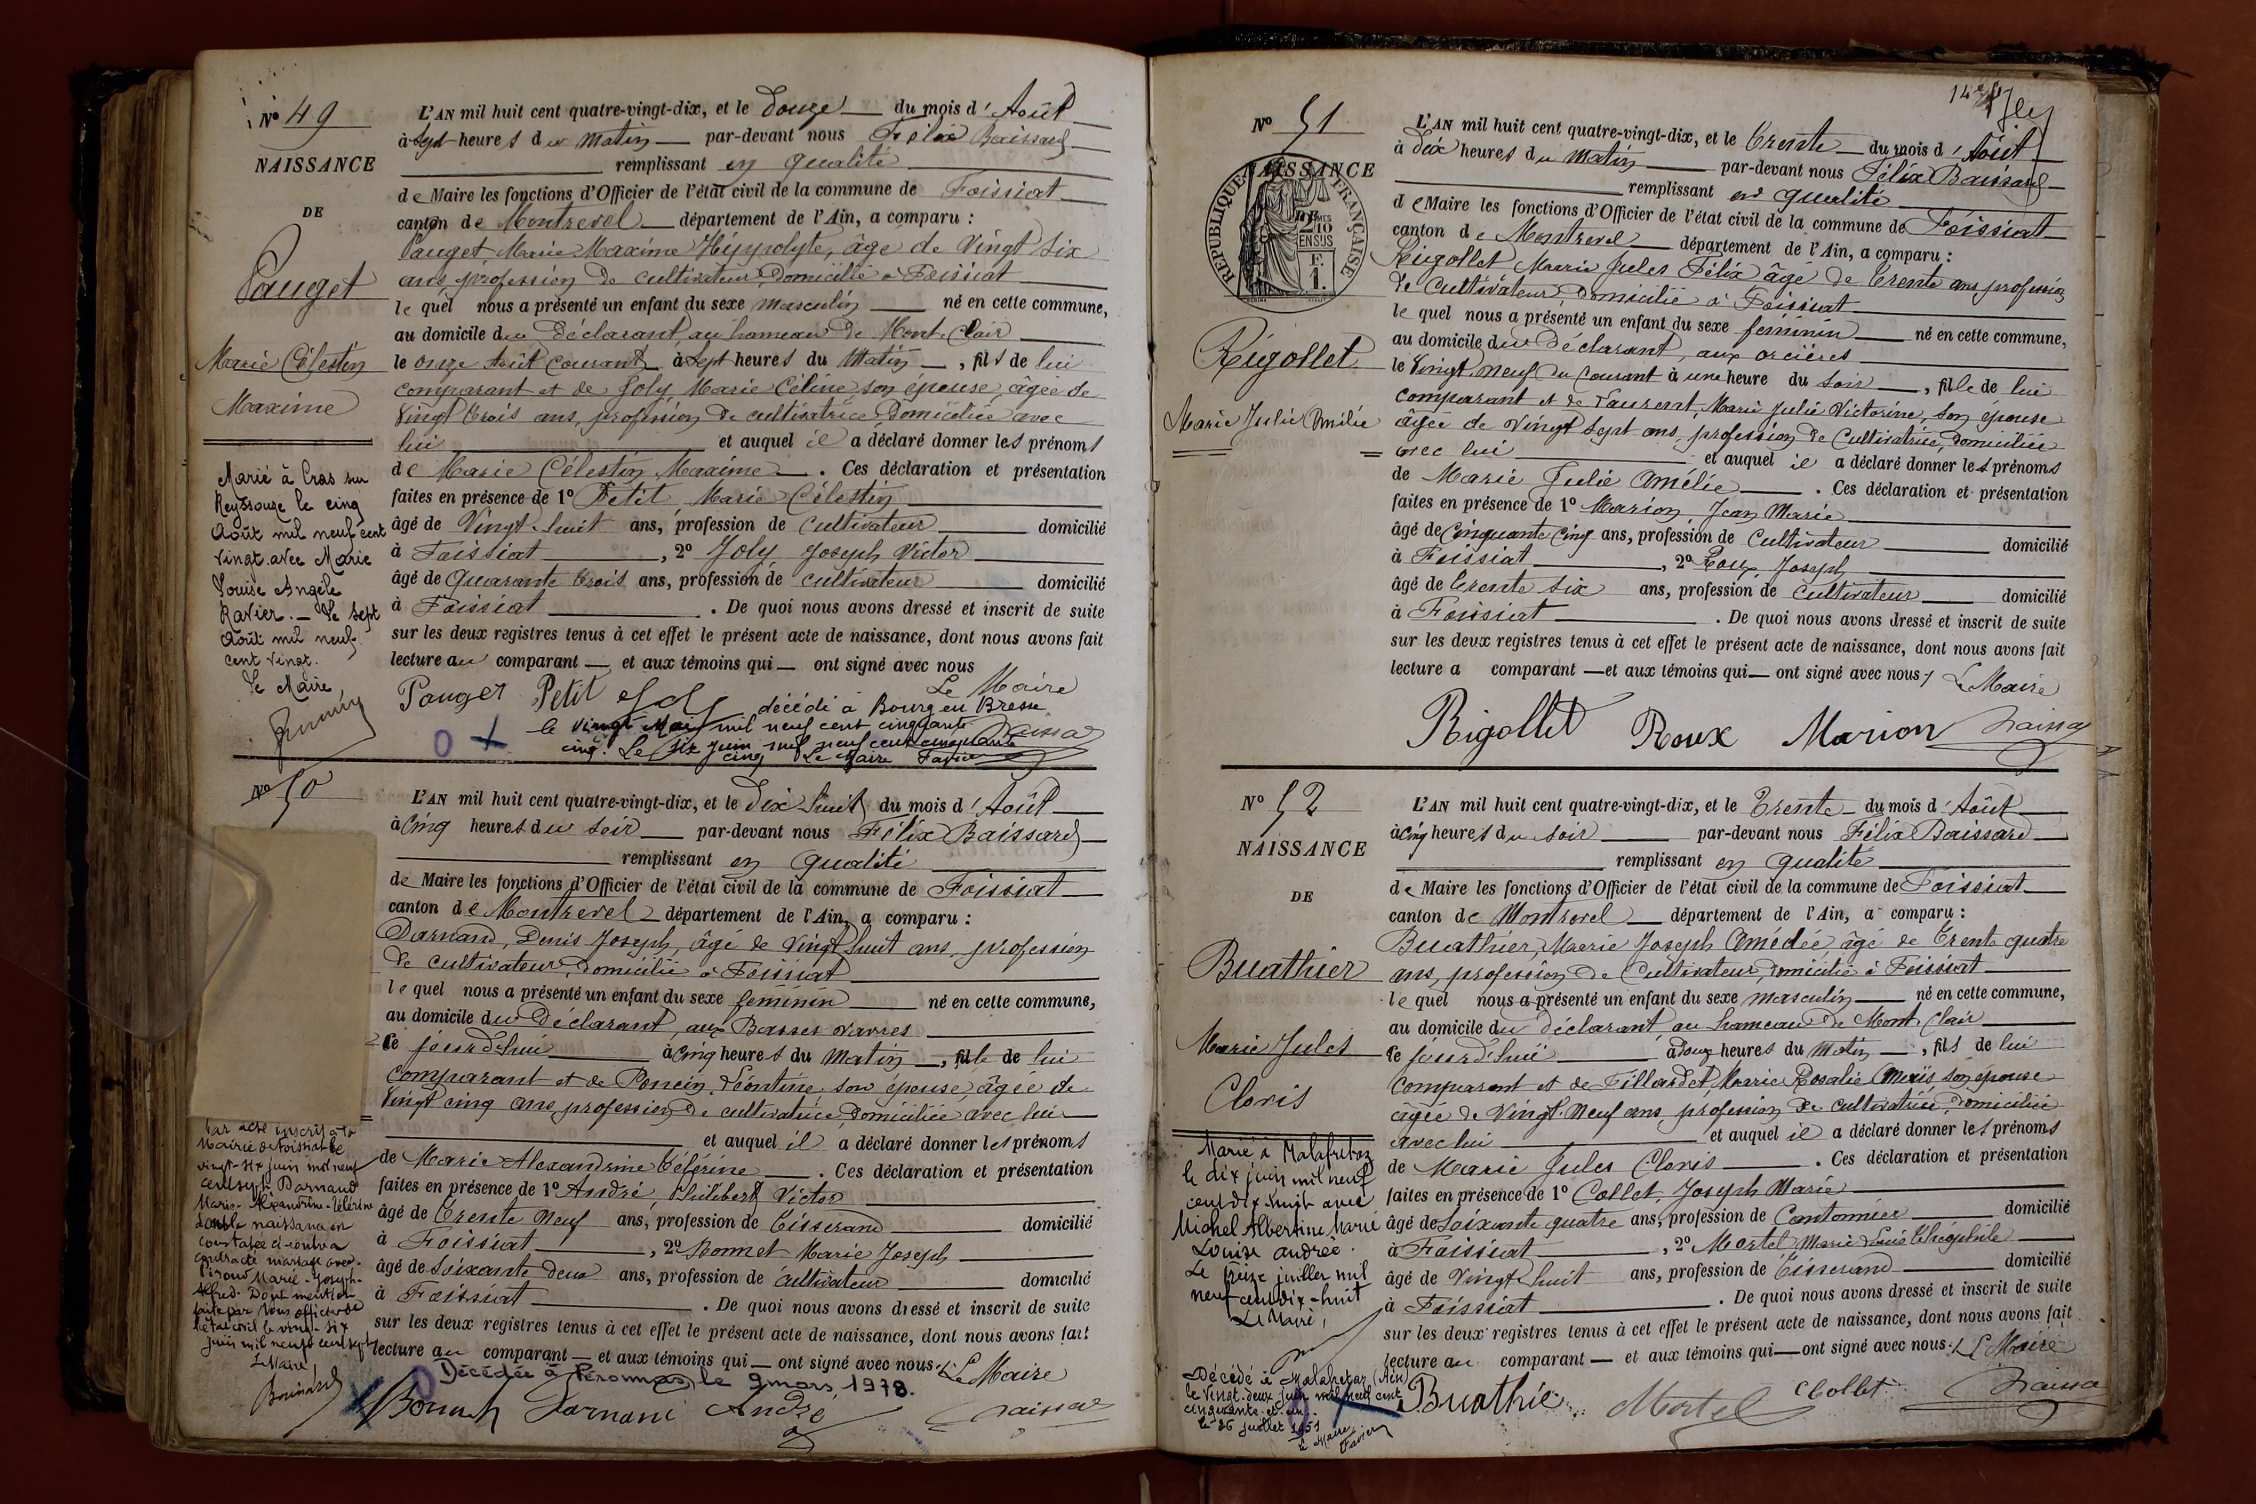 N° 49
NAISSANCE
DE
Pauget
Marie Célestin
Maxime
L'AN mil huit cent quatre-vingt-dix, et le Douze du mois d'Août
à Sept heures du Matin par-devant nous Félix Baissard
remplissant en qualité
de Maire les fonctions d'Officier de l'état civil de la commune de Foissiat
canton de Montrevel département de l'Ain, a comparu :
Pauget, Marie Maxime Hyppolyte, âgé de Vingt six
ans, profession de cultivateur, Domicilié à Foissiat
le quel nous a présenté un enfant du sexe masculin né en cette commune,
au domicile du Déclarant, au hameau de Mont-Clair
le onze Août courant à Sept heures du Matin, fils de lui
comparant et de Joly Marie Céline son épouse, âgée de
Vingt trois ans, profession de cultivatrice Domiciliée avec
lui et auquel il a déclaré donner les prénoms
de Marie Célestin Maxime. Ces déclaration et présentation
faites en présence de 1° Petit Marie Célestin
âgé de Vingt-huit ans, profession de cultivateur domicilié
à Foissiat, 2° Joly Joseph Victor
âgé de Quarante trois ans, profession de cultivateur domicilié
à Foissiat. De quoi nous avons dressé et inscrit de suite
sur les deux registres tenus à cet effet le présent acte de naissance, dont nous avons fait
lecture au comparant et aux témoins qui ont signé avec nous
Le Maire
Pauget Petit Joly
décédé à Bourg en Bresse
le vingt Mai mil neuf cent cinquante
cinq. Le six juin mil neuf cent cinquante
cinq Le Maire
Marié à Cras sur
Reyssouze le cinq
Août mil neuf cent
vingt avec Marie
Louise Angèle
Ravier. — Le sept
Août mil neuf
cent vingt.
Le Maire
N° 50
L'AN mil huit cent quatre-vingt-dix, et le Dix huit du mois d'Août
à Cinq heures du soir par-devant nous Félix Baissard
remplissant en qualité
de Maire les fonctions d'Officier de l'état civil de la commune de Foissiat
canton de Montrevel département de l'Ain, a comparu :
Darnand, Denis Joseph, âgé de vingt huit ans, profession
de cultivateur, Domicilié à Foissiat
le quel nous a présenté un enfant du sexe féminin né en cette commune,
au domicile du Déclarant, aux Basses Varres
ce jourd'hui à cinq heures du Matin, fille de lui
comparant et de Poncin Léontine son épouse, âgée de
Vingt cinq ans, profession de cultivatrice Domiciliée avec lui
et auquel il a déclaré donner les prénoms
de Marie Alexandrine Célérine. Ces déclaration et présentation
faites en présence de 1° André Philibert Victor
âgé de Trente Neuf ans, profession de Tisserand domicilié
à Foissiat, 2° Bonnet Marie Joseph
âgé de Soixante deux ans, profession de cultivateur domicilié
à Foissiat. De quoi nous avons dressé et inscrit de suite
sur les deux registres tenus à cet effet le présent acte de naissance, dont nous avons fait
lecture au comparant et aux témoins qui ont signé avec nous. Le Maire
Décédée à Péronnas, le 9 mars 1978.
Darnand André
Par acte inscrit à la
Mairie de Foissiat le
vingt-six juin mil neuf
cent sept Darnand
Marie-Alexandrine-Célérine
dont la naissance est
constatée ci-contre a
contracté mariage avec
Marie-Joseph-
Alfred. Dont mention
faite par Nous officier de
l'état civil le vingt-six
juin mil neuf cent sept
Le Maire,
14e
N° 51
NAISSANCE
RÉPUBLIQUE FRANÇAISE
2/10
EN SUS
F.
1.
Rigollet
Marie Julie Amélie
L'AN mil huit cent quatre-vingt-dix, et le Trente du mois d'Août
à dix heures du Matin par-devant nous Félix Baissard
remplissant en qualité
de Maire les fonctions d'Officier de l'état civil de la commune de Foissiat
canton de Montrevel département de l'Ain, a comparu :
Rigollet Marie Jules Félix âgé de Trente ans profession
de Cultivateur, Domicilié à Foissiat
le quel nous a présenté un enfant du sexe féminin né en cette commune,
au domicile du Déclarant, aux orcières
le Vingt-neuf du courant à une heure du soir, fille de lui
comparant et de Laurent, Marie Julie Victorine, son épouse
âgée de vingt sept ans, profession de Cultivatrice, Domiciliée
avec lui et auquel il a déclaré donner les prénoms
de Marie Julie Amélie. Ces déclaration et présentation
faites en présence de 1° Marion Jean Marie
âgé de Cinquante Cinq ans, profession de Cultivateur domicilié
à Foissiat, 2° Roux Joseph
âgé de Trente six ans, profession de Cultivateur domicilié
à Foissiat. De quoi nous avons dressé et inscrit de suite
sur les deux registres tenus à cet effet le présent acte de naissance, dont nous avons fait
lecture a comparant et aux témoins qui ont signé avec nous
Le Maire
Rigollet Roux Marion
N° 52
NAISSANCE
DE
Buathier
Marie Jules
Clovis
L'AN mil huit cent quatre-vingt-dix, et le Trente du mois d'Août
à cinq heures du soir par-devant nous Félix Baissard
remplissant en qualité
de Maire les fonctions d'Officier de l'état civil de la commune de Foissiat
canton de Montrevel département de l'Ain, a comparu :
Buathier, Marie Joseph Amédée, âgé de Trente quatre
ans, profession de Cultivateur, domicilié à Foissiat
le quel nous a présenté un enfant du sexe masculin né en cette commune,
au domicile du déclarant, au hameau de Mont Clair
ce jourd'hui à heures du Matin, fils de lui
comparant et de Fillardet, Marie Rosalie son épouse
âgée de Vingt-Neuf ans, profession de cultivatrice, domiciliée
avec lui et auquel il a déclaré donner les prénoms
de Marie Jules Clovis. Ces déclaration et présentation
faites en présence de 1° Collet, Joseph Marie
âgé de Soixante quatre ans, profession de Cantonnier domicilié
à Foissiat, 2° Mortel Marie Louis Théophile
âgé de Vingt-huit ans, profession de Tisserand domicilié
à Foissiat. De quoi nous avons dressé et inscrit de suite
sur les deux registres tenus à cet effet le présent acte de naissance, dont nous avons fait
lecture au comparant et aux témoins qui ont signé avec nous. Le Maire
Buathier Mortel Collet
Marié à Malafretaz
le dix juin mil neuf
cent dix-huit avec
Michel Albertine Marie
Louise Andrée.
Le treize juillet mil
neuf cent dix-huit
Le Maire,
Décédé à Malafretaz (Ain)
le vingt-deux juin mil neuf cent
cinquante-et-un.
le 26 juillet 1951
Le Maire